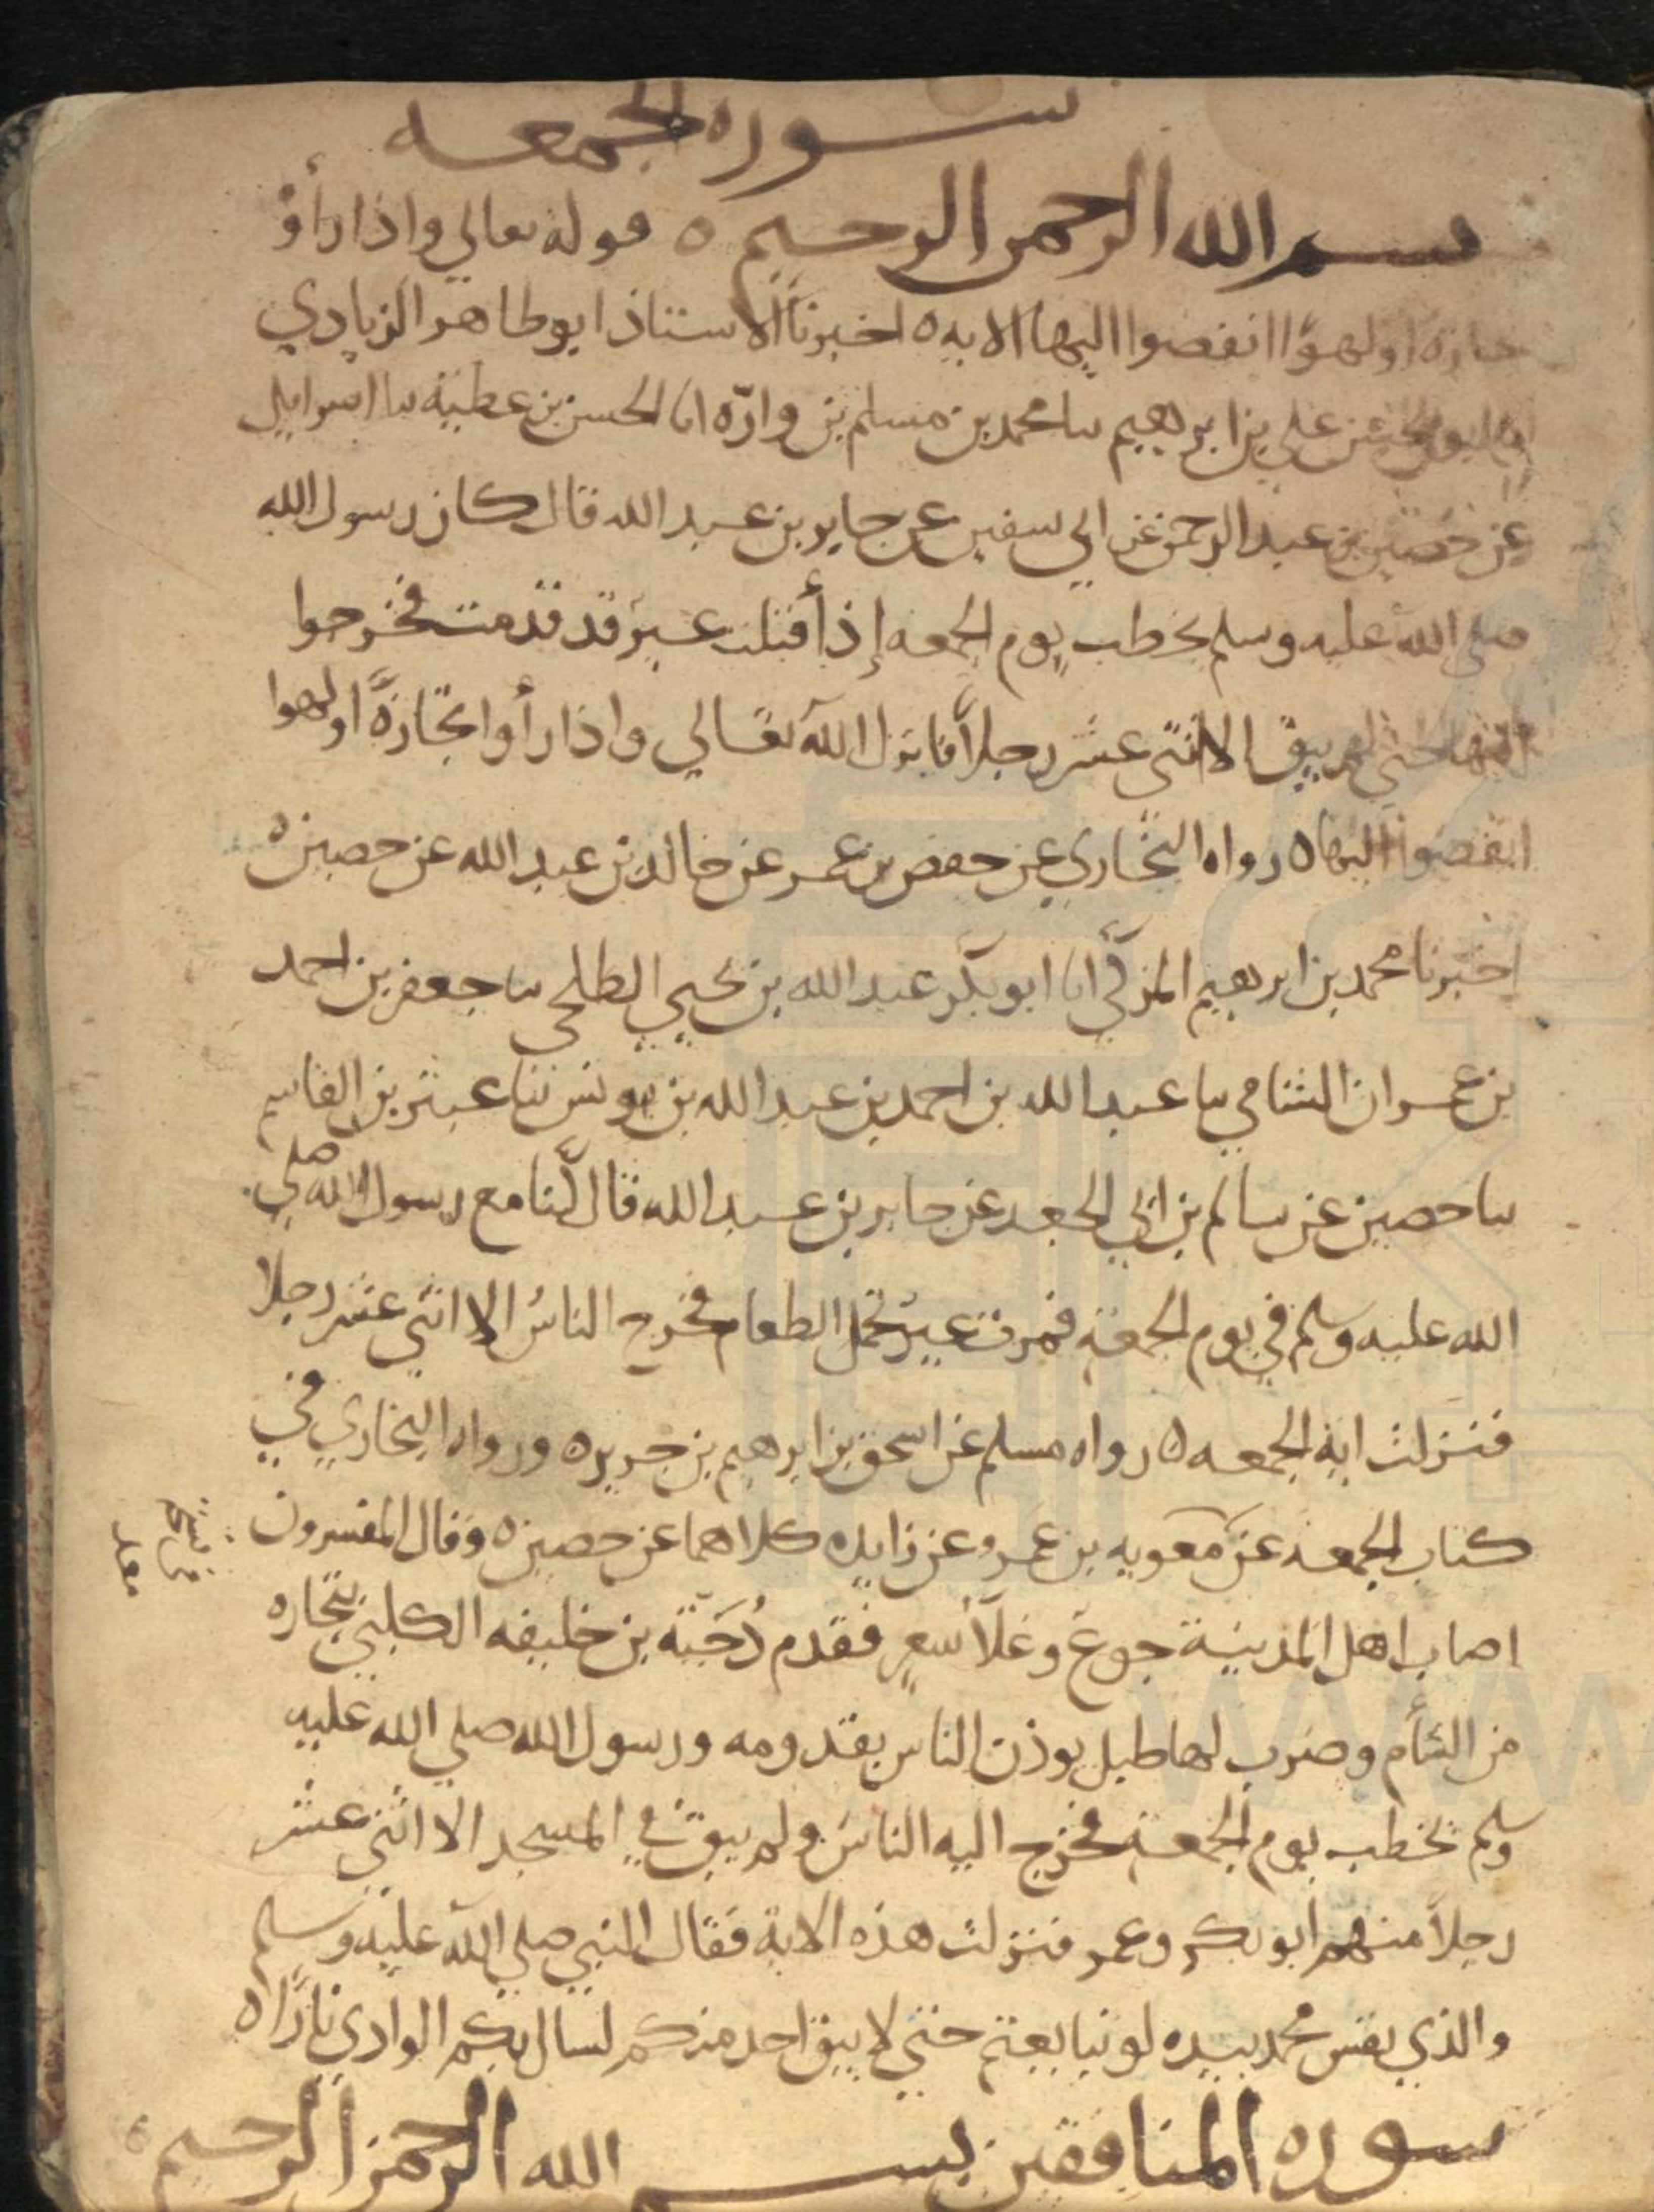 سوره الجمعه
بسم الله الرحمن الرحيم ه قوله تعالي واذا رأوْ
تجارة او لهوًا انفضوا اليها الايه ه اخبرنا الاستاذ ابو طاهر الزيادي
انا ابو الحسن علي بن ابرهيم سا محمد بن مسلم بن وارّه انا الحسن بن عطية سا اسرايل
عن حصين بن عبد الرحمن عن ابي سفين عن جابر بن عبد الله قال كان رسول الله
صلى الله عليه وسلم يخطب يوم الجمعه إذ أقبلت عير قد قدمت فخرجوا
اليها حتي لم يبق الا اثني عشر رجلاً فانزل الله تعالي واذا رأوا تجارةً او لهوا
انفضوا اليها ه رواه البخاري عن حفص بن عمر عن خالد بن عبد الله عن حصين ه
اخبرنا محمد بن ابرهيم المزكي انا ابو بكر عبد الله بن يحيي الطلحي سا جعفر بن احمد
بن عمران الشامي سا عبد الله بن احمد بن عبد الله بن يونس ثنا عبثر بن القاسم
سا حصين عن سالم بن ابي الجعد عن جابر بن عبد الله قال كنا مع رسول الله صلي
الله عليه وسلم في يوم الجمعة فمرت عيرٌ تحمل الطعام فخرج الناسُ الا اثني عشر رجلا
فنزلت اية الجمعه ه رواه مسلم عن اسحق بن ابرهيم بن جرير ه ورواه البخاري في
كتاب الجمعه عن معويه بن عمرو عن زايده كلاهما عن حصين ه وقال المفسرون
اصاب اهل المدينة جوع وغلآ سعرٍ فقدم دُحَيَة بن خليفه الكلبي بتجاره
من الشأم وضرب لها طبل يوذن الناس بقدومه ورسول الله صلي الله عليه
وسلم يخطب يوم الجمعة فخرج اليه الناس ولم يبق في المسجد الا اثني عشر
رجلاً منهم ابو بكر وعمر فنزلت هذه الاية فقال النبي صلي الله عليه وسلم
والذي نفس محمد بيده لو تتابعتم حتي لا يبق احد منكم لسال بكم الوادي نارًا ه
سوره المنافقين بسم الله الرحمن الرحيم ه